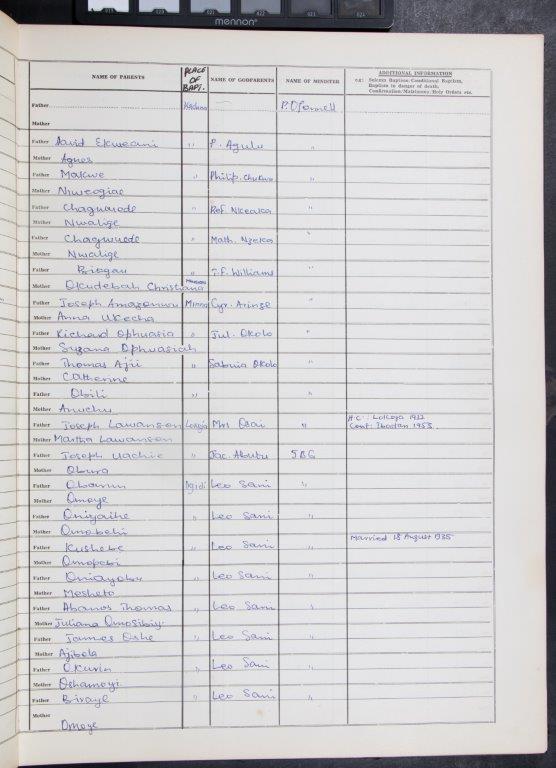 mennon
NAME OF PARENTS PLACE OF BAPT. NAME OF GODPARENTS NAME OF MINISTER ADDITIONAL INFORMATION
e.g: Solemn Baptism/Conditional Baptism,
Baptism in danger of death,
Confirmation/Matrimony/Holy Orders etc.
Father Kaduna P. O'Connell
Mother
Father David Ekweani " P. Agulu "
Mother Agnes
Father Makwe " Philip. Chukwu "
Mother Nweogiae
Father Chagwuede " Ref. Nkeaka "
Mother Nwalige
Father Chagwuede " Math. Nzeka "
Mother Nwalige
Father Briogan " T.F. Williams "
Mother Okudebah Christiana
Father Joseph Amazonwu Minna Cyr. Arinze "
Mother Anna Ukecha
Father Richard Ophuasia " Jul. Okolo "
Mother Suzana Ophuasiah
Father Thomas Ajii " Sabinia Okolo "
Mother Catherine
Father Obili " "
Mother Anuchu
Father Joseph Lawanson Lokoja Mrs Osai " H.C: Lokoja 1932
Conf: Ibadan 1953.
Mother Martha Lawanson
Father Joseph Uachie " Jac. Abutu
Mother Obura
Father Obanun Ogidi Leo Sani "
Mother Omoye
Father Onigaihe " Leo Sani "
Mother Omobehi
Father Kushebe " Leo Sani " Married 18 August 1935
Mother Omopebi
Father Oniayobu " Leo Sani "
Mother Mosheto
Father Abanos Thomas " Leo Sani "
Mother Juliana Omosibiy
Father James Oshe " Leo Sani "
Mother Ajibola
Father Okurin " Leo Sani "
Mother Oshamoyi
Father Birayl " Leo Sani "
Mother
Omoye